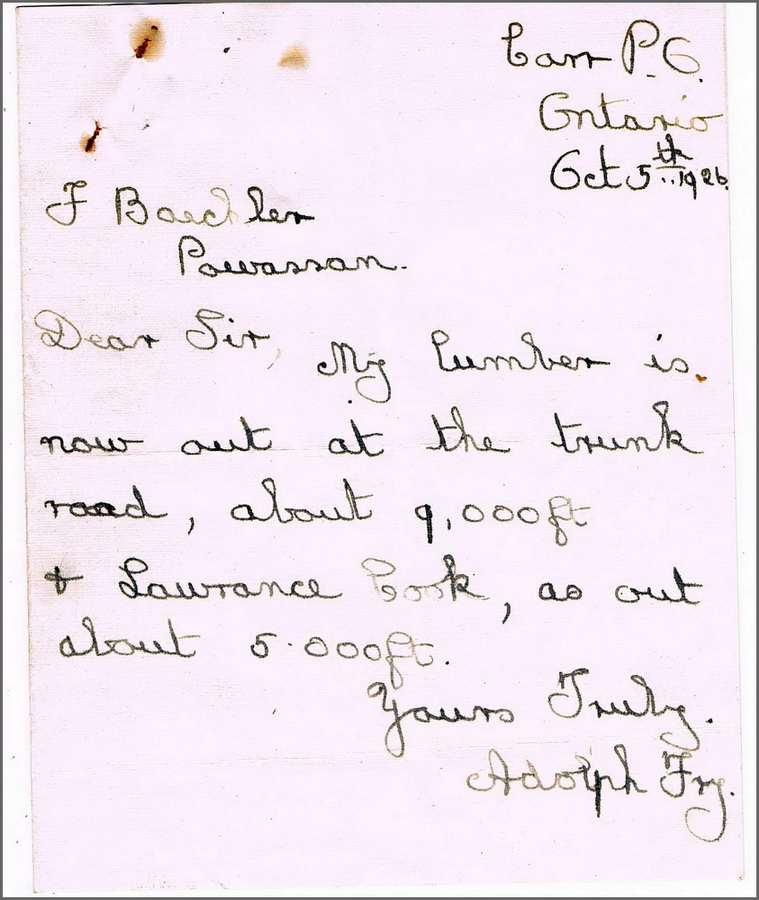 Carr P.O.
Ontario
Oct 5th 1926.
F Baechler
Powassan.
Dear Sir, My lumber is
now out at the trunk
road, about 9,000ft
& Lawrance Cook, as out
about 5.000ft.
Yours Truly.
Adolph Fry.